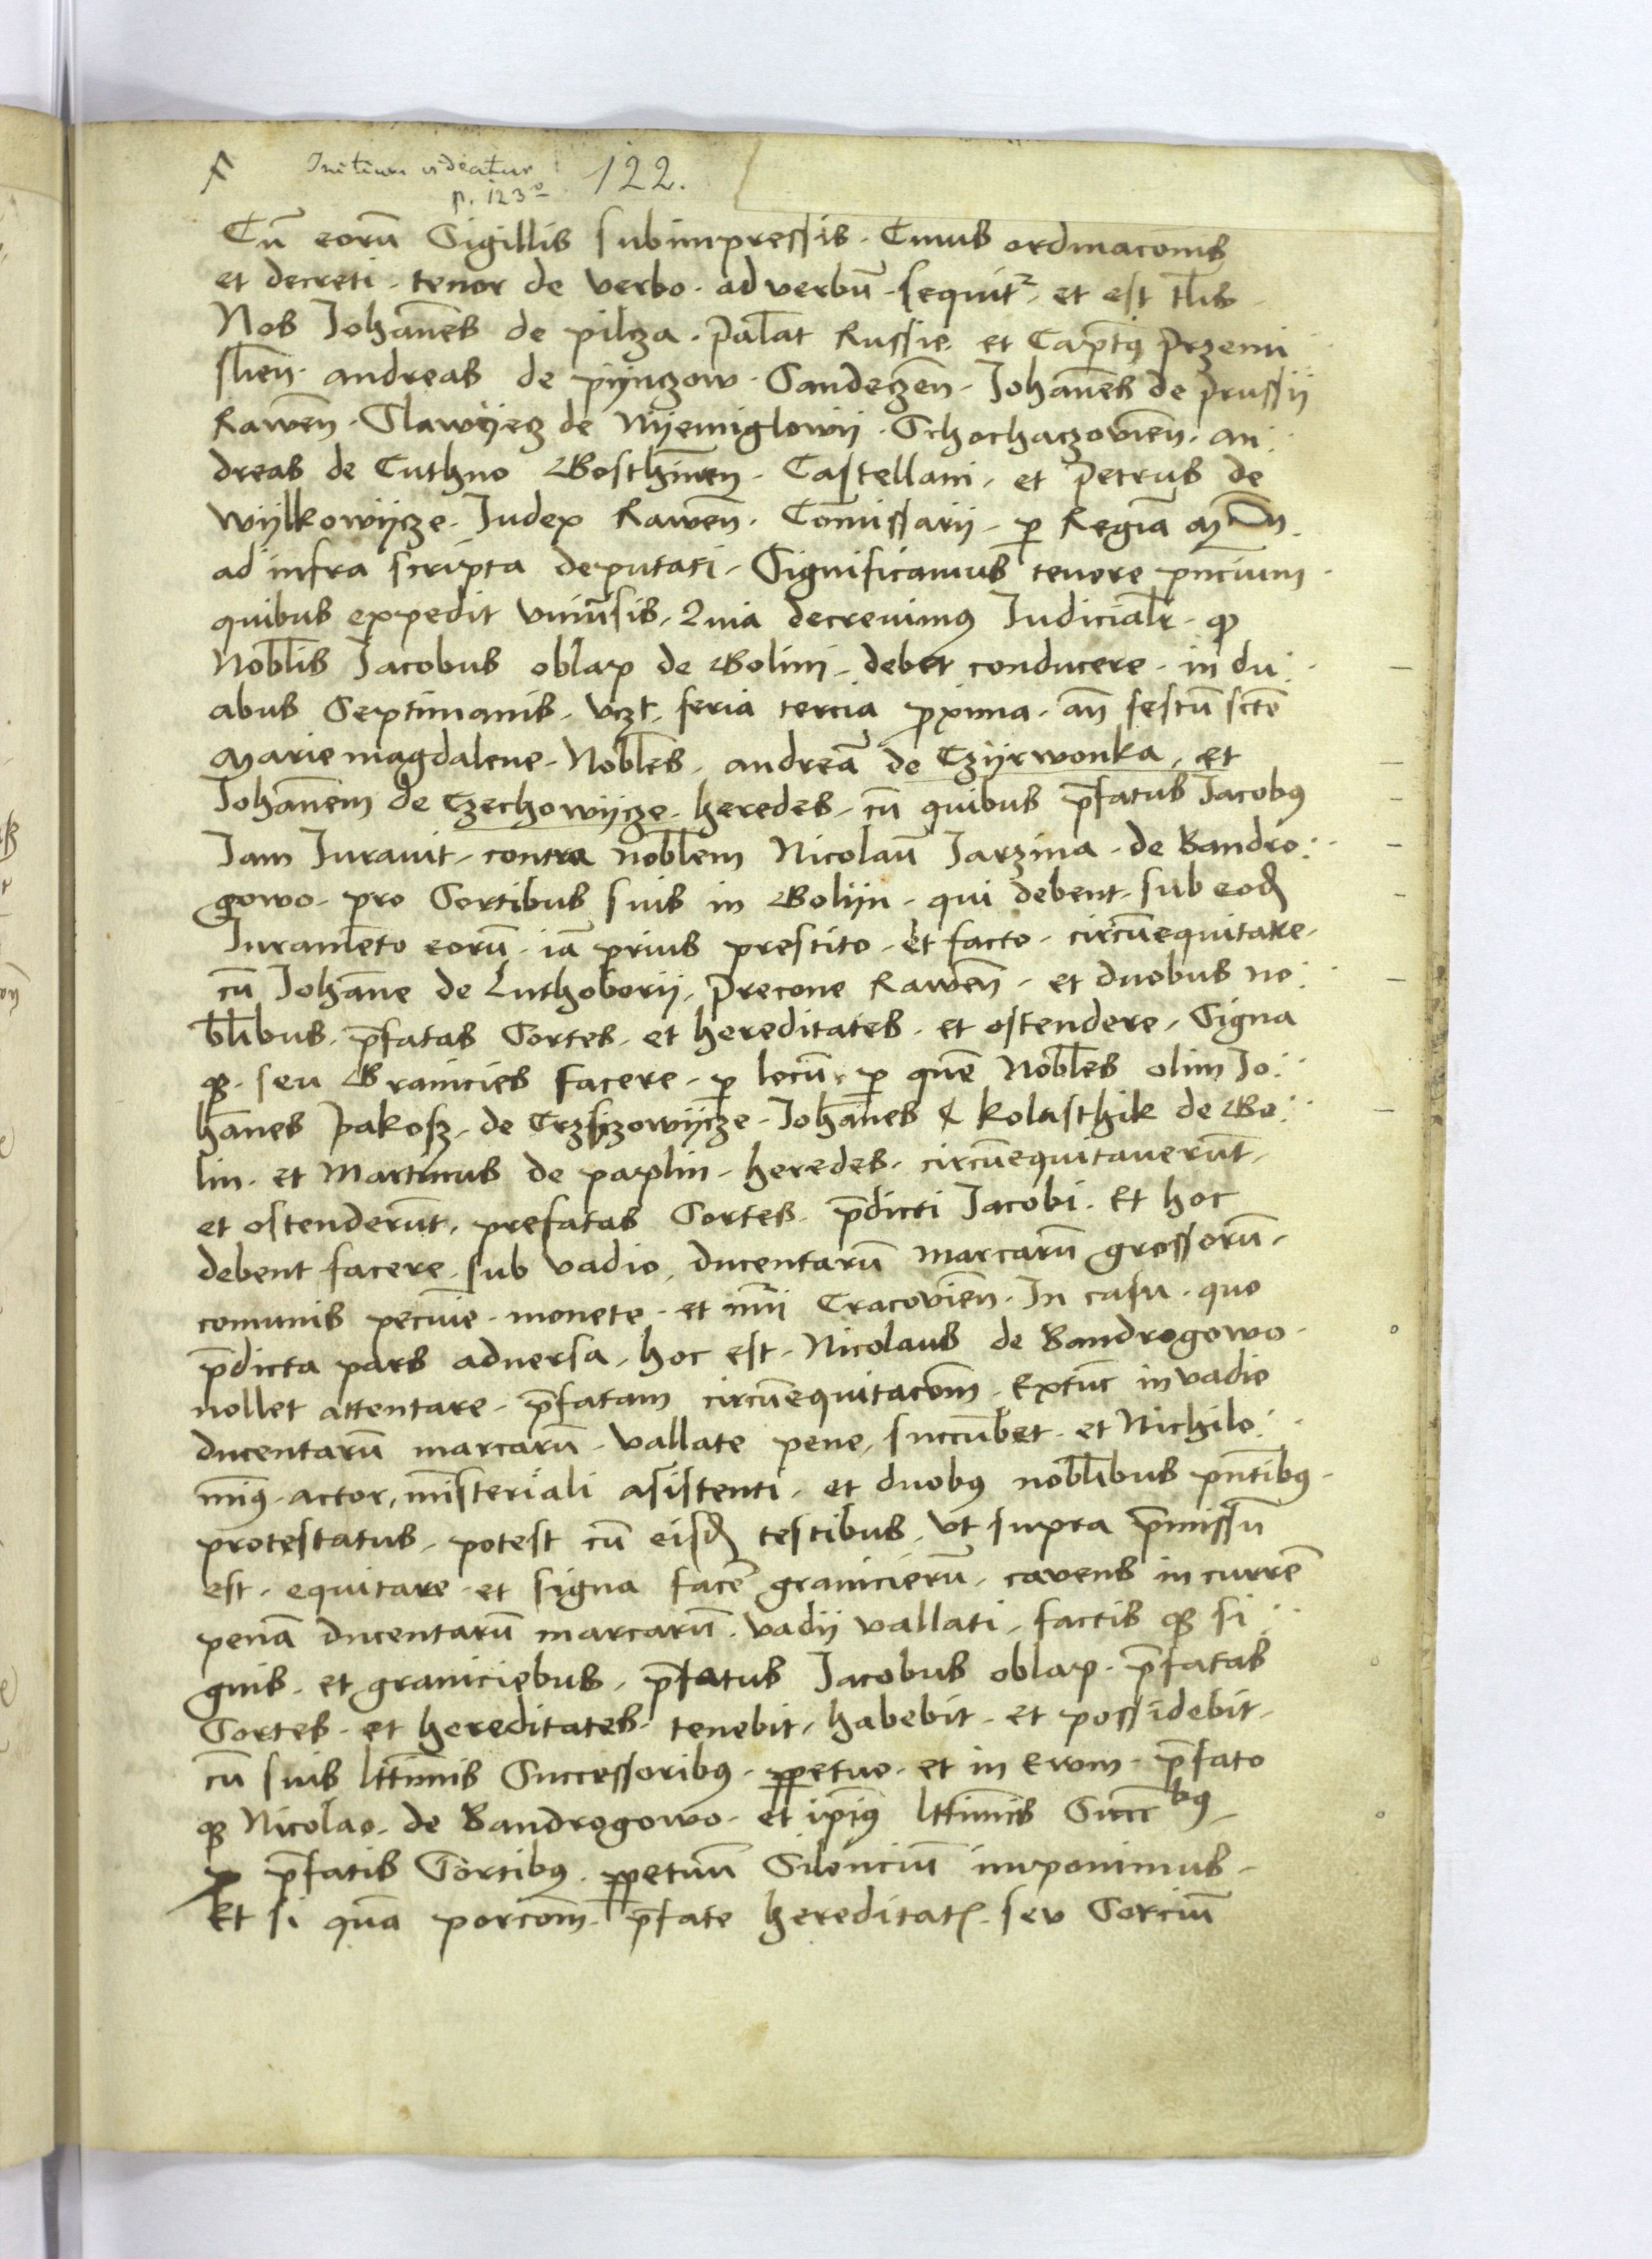 Initium videatur 122.
p. 123º
Cũ eorũ Sigillis subimpressis · Cuius ordinacõnis
et decreti · tenor de verbo · ad verbũ · sequitr · et est tlis ·
Nos Johañes de pilcza · Palat Russie et Capts Przemi
slieñ · andreas de pijnczow · Sandeczeñ · Johañes de prussij
Raweñ · Slawijecz de Nijemiglowij · Schochaczovieñ · an
dreas de Cuthno Bosthineñ · Castellani · et Petrus de
Wijlkowijcze · Judex Raweñ · Com̃issarij · p Regiã
ad infra scripta deputati · Significamus tenore pñcium ·
quibus expedit uniṽsis · Quia decrevimus Judicialr · qd
Nobl̃is Jacobus oblap de Bolini · debet conducere · in du
abus Septimanis · vczt · feria tercia proxima · añ festũ scte
Marie magdalene · Nobl̃es · andreã de Czijrwonka, et
Johañem de Czechowijcze · heredes · cũ quibus p̃fatus Jacobus
Jam Juravit · contra nobl̃em Nicolaũ Jarzina · de Bandro
gowo · pro Sortibus suis in Bolijn · qui debent · sub eod
Juram̃ento eorũ · iã prius prestito · et facto · circũequitare ·
cũ Johañe de Luthoborij · Precone Raweñ · et duobus no
bl̃ibus · p̃fatas Sortes · et hereditates · et ostendere · Signa
q · seu Granicies facere · p locũ · p quẽ Nobl̃es olim Jo
hañes Pakosz · de Trzsczowijcze · Johañes & Kolasthik de Bo
lin · et Martinus de paplin · heredes · circũequitaverũt ·
et ostenderũt · prefatas Sortes · p̃dicti Jacobi · Et hoc
debent facere · sub vadio, ducentarũ marcarũ grossorũ ·
comunis pecũie · monete · et nũi Cracovieñ · In casu · quo
p̃dicta pars adversa · hoc est · Nicolaus de Bandrogowo ·
nollet attentare · p̃fatam circũequitacõm · Extũc in vadio
ducentarũ marcarũ · vallate pene, succũbet · et Nichilo
mĩs · actor, mĩsteriali asistenti · et duobus nobl̃ibus pñtibus ·
protestatus · potest cũ eisd testibus · Vt supra p̃missũ
est · equitare · et signa facẽ granicierũ · cavens in currẽ
penã ducentarũ marcarũ · vadij vallati · factis q si
gnis · et graniciebus · p̃fatus Jacobus oblap · p̃fatas
Sortes · et hereditates · tenebit · habebit · et possidebit ·
cũ suis lttimis Successoribus · ppetue · et in Evom · p̃fato
q Nicolao · de Bandrogowo · et ip̃ius lttimis Succbus
p p̃fatis Sortibus · ppetuũ Silenciũ imponimus ·
Et si quã porcõm · p̃fate hereditatis · seu Sorciũ